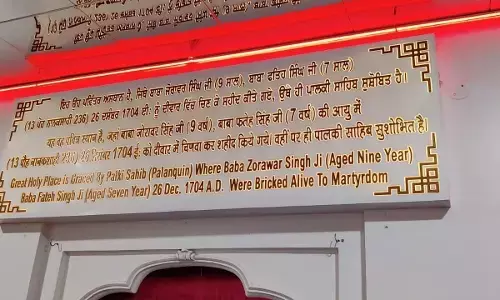 ਇਹ ਉਹ ਪਵਿੱਤਰ ਅਸਥਾਨ ਹੈ, ਜਿਥੇ ਬਾਬਾ ਜੋਰਾਵਰ ਸਿੰਘ ਜੀ (9 ਸਾਲ), ਬਾਬਾ ਫਤਿਹ ਸਿੰਘ ਜੀ (7 ਸਾਲ)
(13 ਪੋਹ ਨਾਨਕਸ਼ਾਹੀ 236) 26 ਦਸੰਬਰ 1704 ਈ: ਨੂੰ ਦੀਵਾਰ ਵਿੱਚ ਚਿਣ ਕੇ ਸ਼ਹੀਦ ਕੀਤੇ ਗਏ, ਉਥੇ ਹੀ ਪਾਲਕੀ ਸਾਹਿਬ ਸੁਸ਼ੋਭਿਤ ਹੈ।
यह वह पवित्र स्थान है, जहां बाबा जोरावर सिंह जी (9 वर्ष), बाबा फतह सिंह जी (7 वर्ष) की आयु में
(13 पौह नानकशाही 236) 26 दिसंबर 1704 ई: को दीवार में चिणवा कर शहीद किये गये। वहीं पर ही पालकी साहिब सुशोभित है।
Great Holy Place is Graced By Palki Sahib (Palanquin) Where Baba Zorawar Singh Ji (Aged Nine Year)
Baba Fateh Singh Ji (Aged Seven Year) 26 Dec. 1704 A.D. Were Bricked Alive To Martyrdom